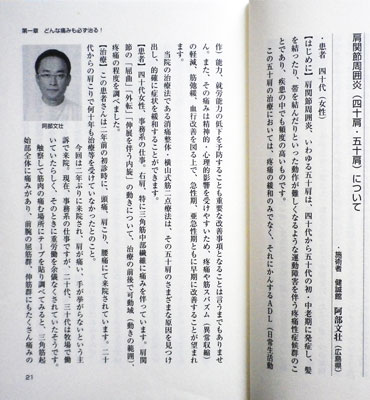 肩関節周囲炎（四十肩・五十肩）について
・施術者　健誠館　阿部文壮（広島県）
・患者　四十代（女性）
【はじめに】肩関節周囲炎、いわゆる五十肩は、四十代から五十代の初・中老期に発症し、髪
を結ったり、帯を結んだりといった動作が難しくなるような運動障害を伴う疼痛性症候群のこ
とであり、疾患の中でも頻度の高いものです。
この五十肩の治療においては、疼痛の緩和のみでなく、それにかんするＡＤＬ（日常生活動
作）能力、就労能力の低下を予防することも重要な改善事項となることは言うまでもありませ
ん。また、その痛みは精神的・心理的影響を受けやすいため、疼痛や筋スパズム（異常収縮）
の軽減、筋弛緩、血行改善を図る上で、急性期、亜急性期ともに早期に改善することが望まれ
ます。
当院の治療法である自痛整体・横山式筋二点療法は、その五十肩のさまざまな原因を見つけ
出し、的確に症状を緩和することができます。
【患者】四十代女性、事務系の仕事。右肩、特に三角筋中部繊維に痛みを伴っています。肩関
節の「屈曲」「外転」「伸展を伴う内旋」の動きについて、治療の前後で可動域（動きの範囲）、
疼痛の程度を調べました。
【治療】この患者さんは二年前の初診時に、頭痛、肩こり、腰痛にて来院されています。二十
代からの肩こりで何十年も治療等を受けていなかったとのこと。
今回は二年ぶりに来院され、肩が痛い、手が挙がらないという主
訴で来院。現在、事務系の仕事ですが、二十代、三十代は牧場で働
いていたらしく、そのときに重労働を余儀なくされていたそうです。
触察して筋肉の痛む場所にテープを貼り調べてみると、三角筋起
始部全体に痛みがあり、前腕の屈筋群、伸筋群にもたくさん痛みの
阿部文壮
第一章　どんな痛みも必ず治る！
21